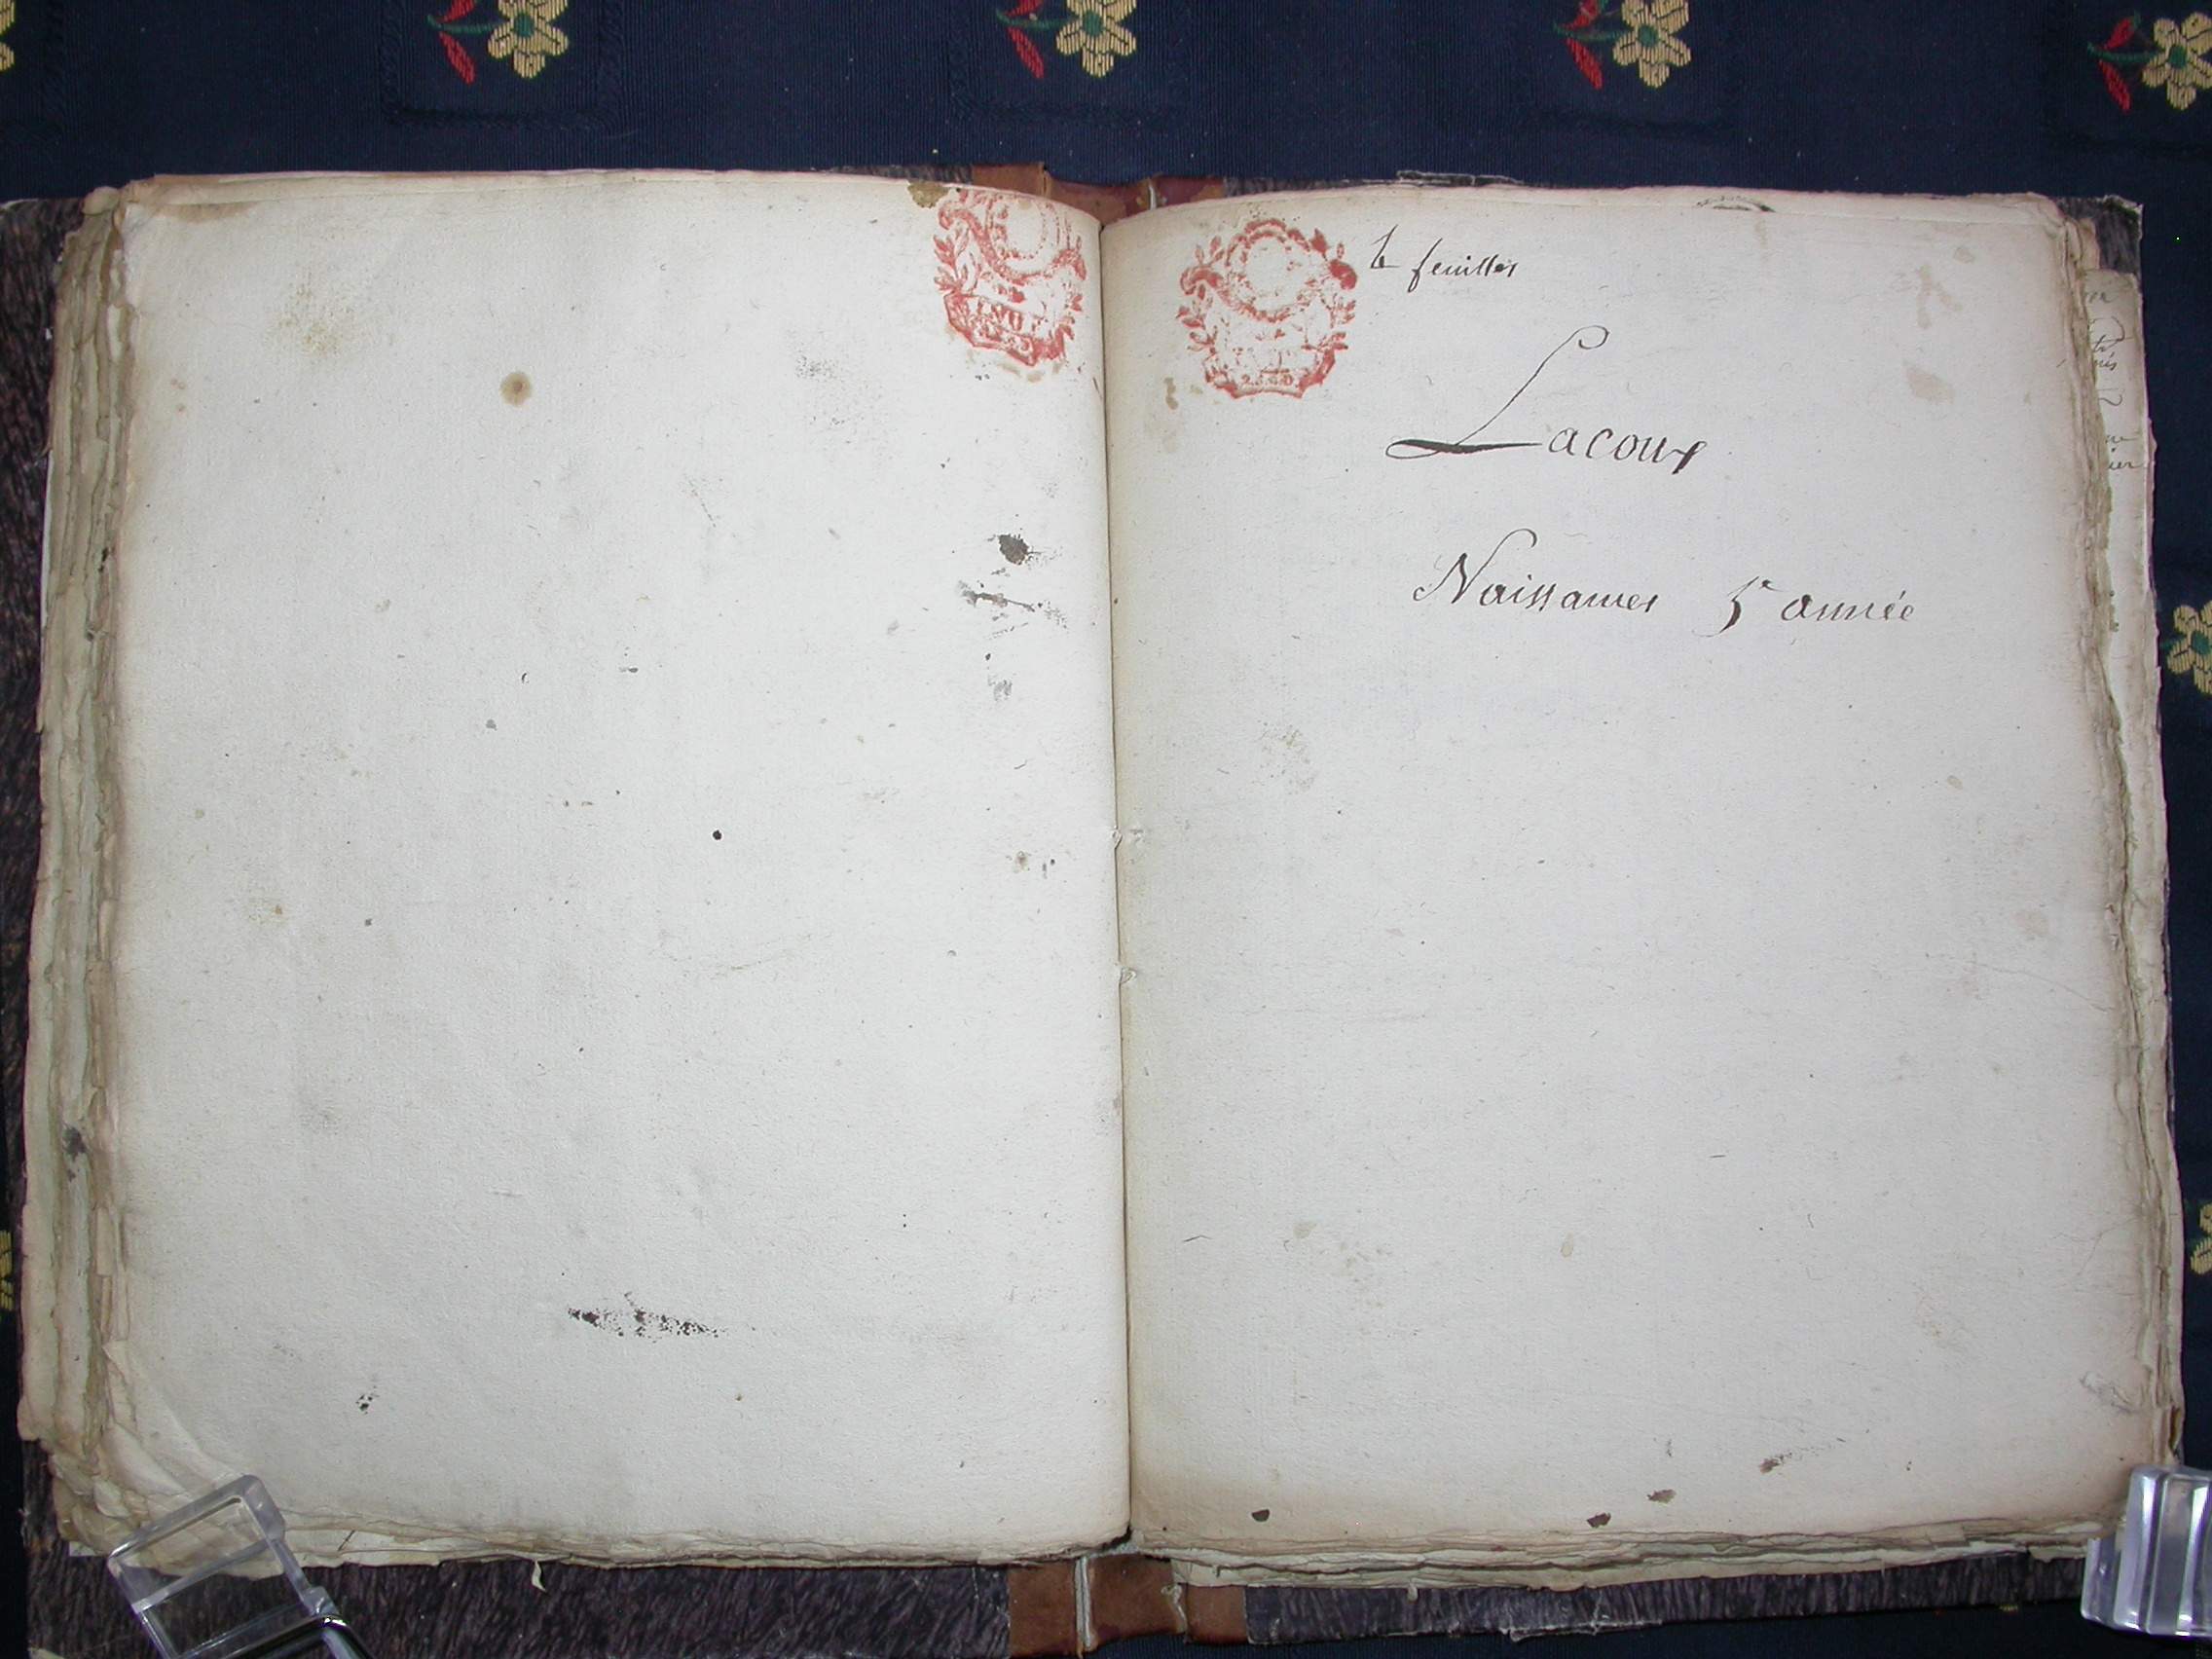 6 feuilles
Lacoux
Naissances 5e année